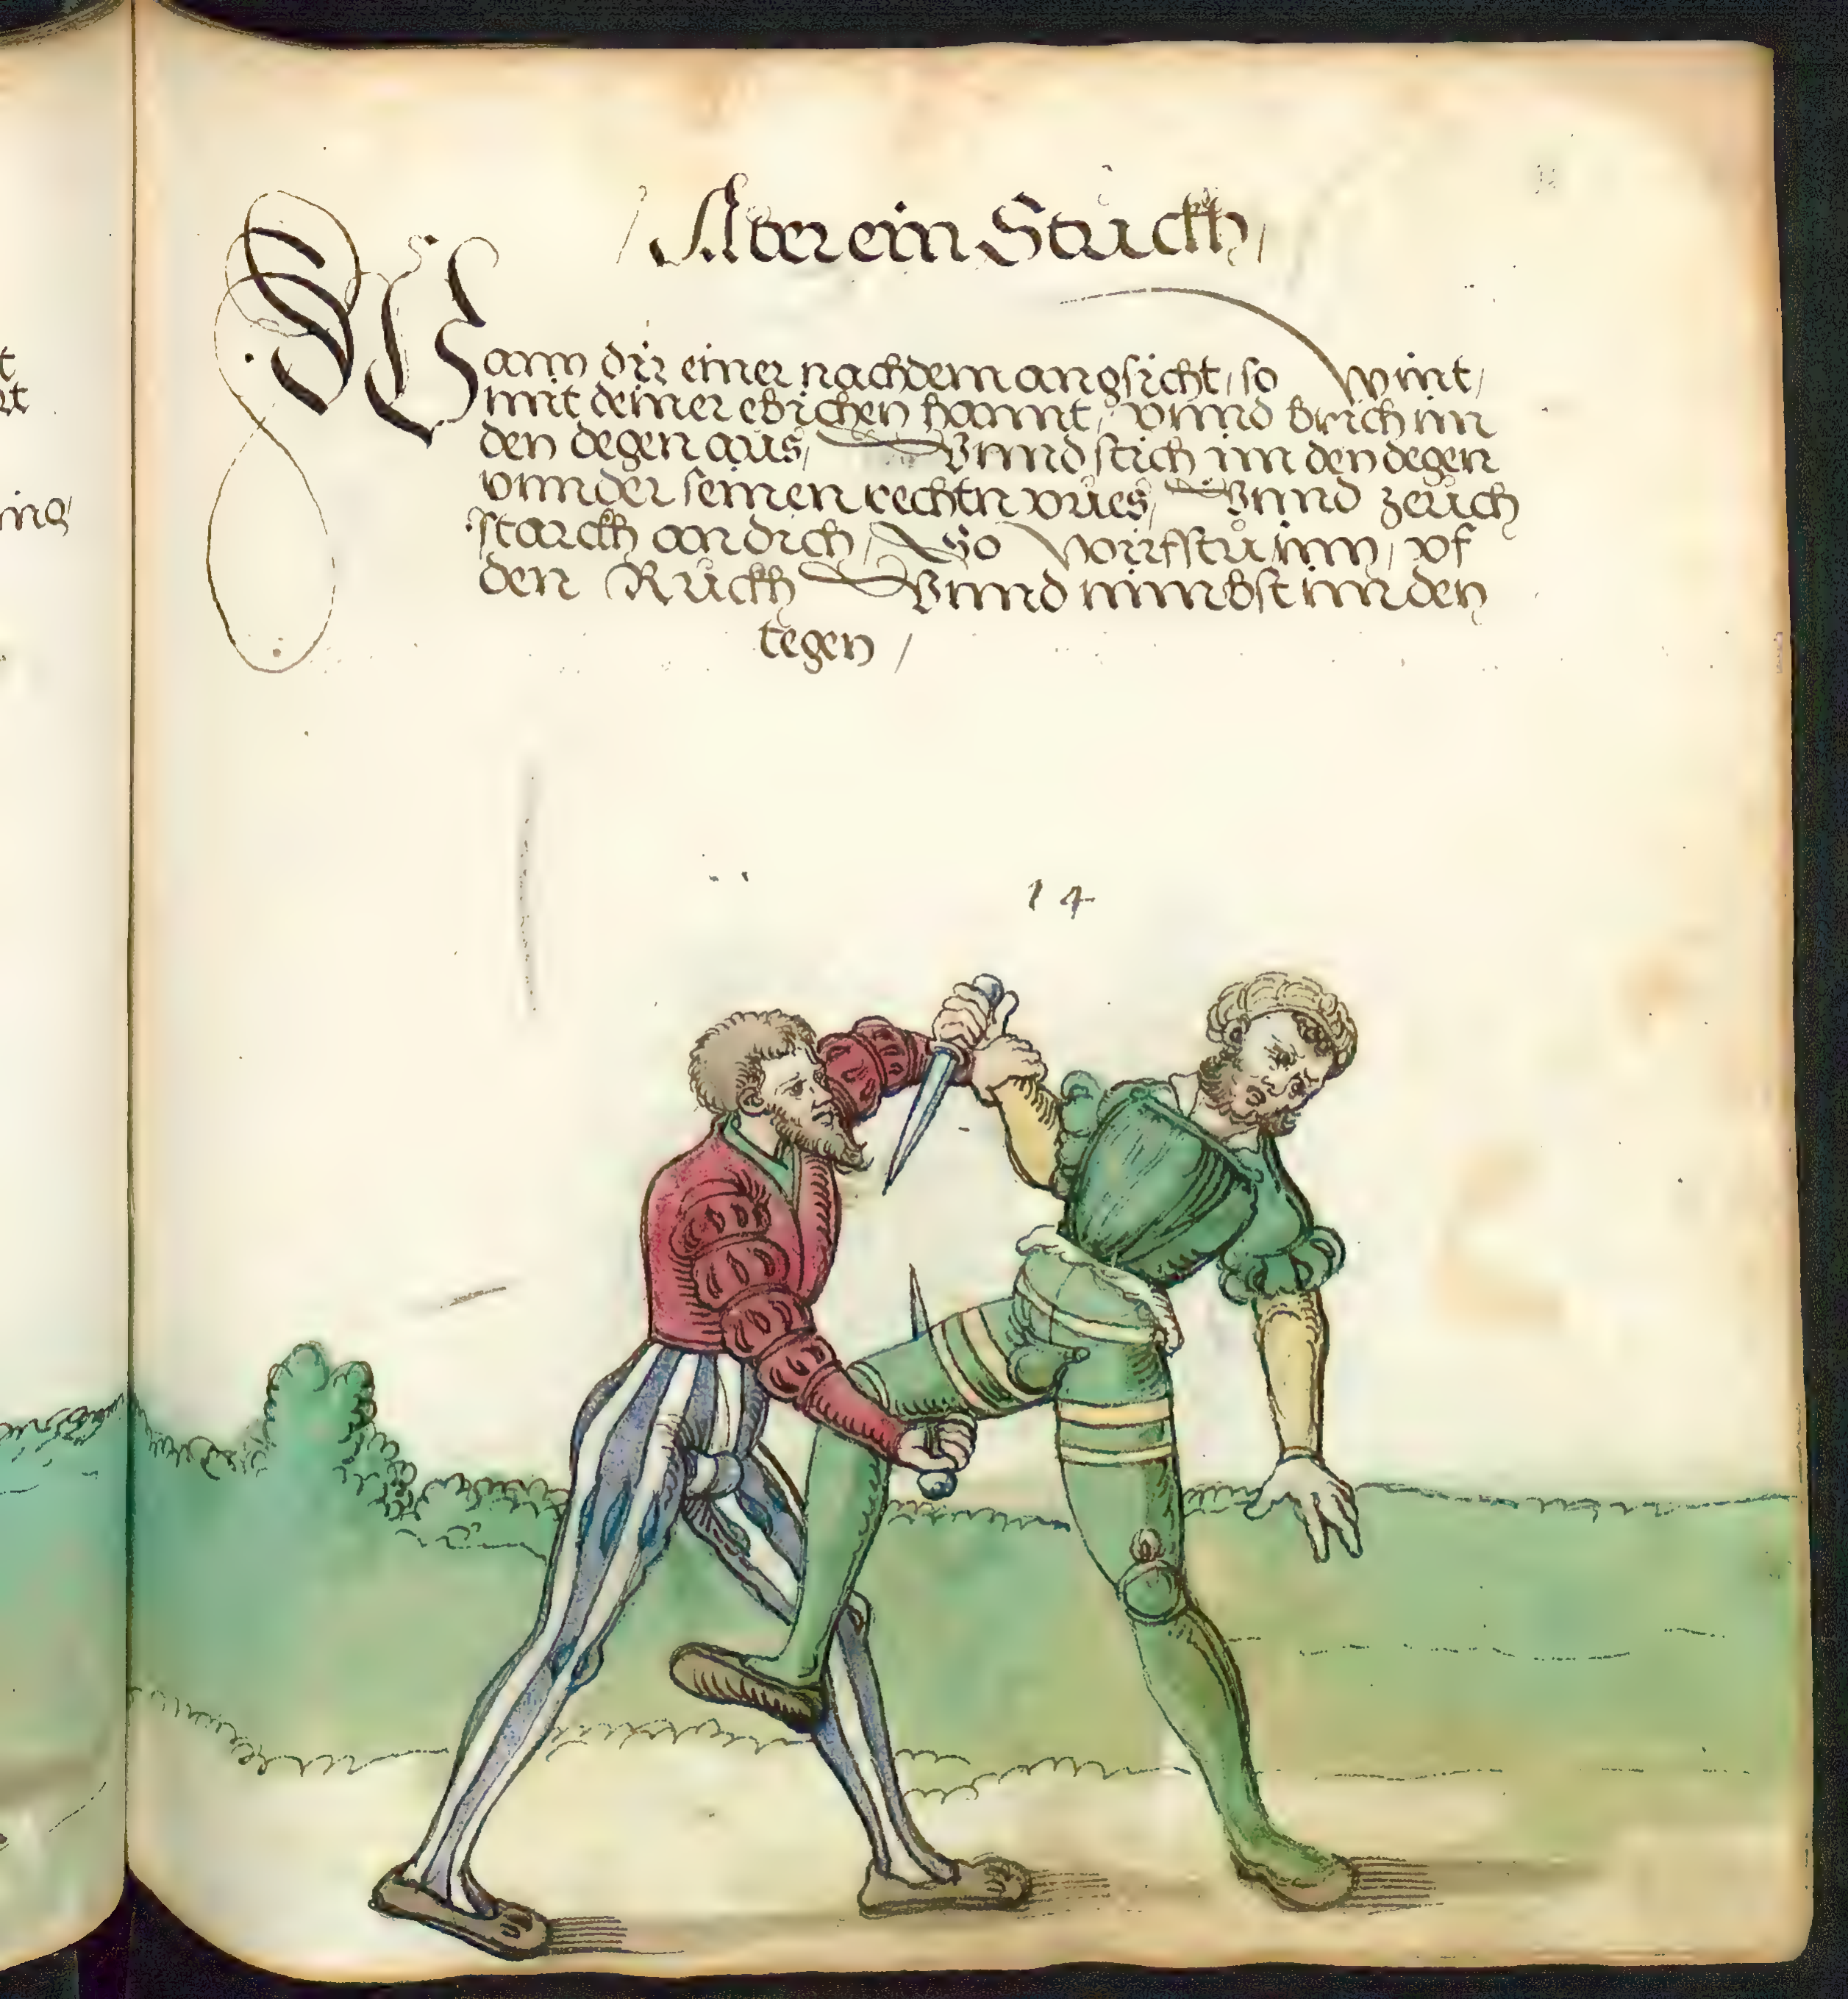 / Aber ein Stuckh /
Wann dir einer nach dem angsicht, so wint /
mit deiner ebichen hannt, vnnd brich im
den degen aus, Vnnd stich im den degen
vnnder seinen rechtn vues, Vnnd zeuch
starckh an dich, So wirfstu inn, vf
den Ruckh Vnnd nimbst im den
tegen /
14